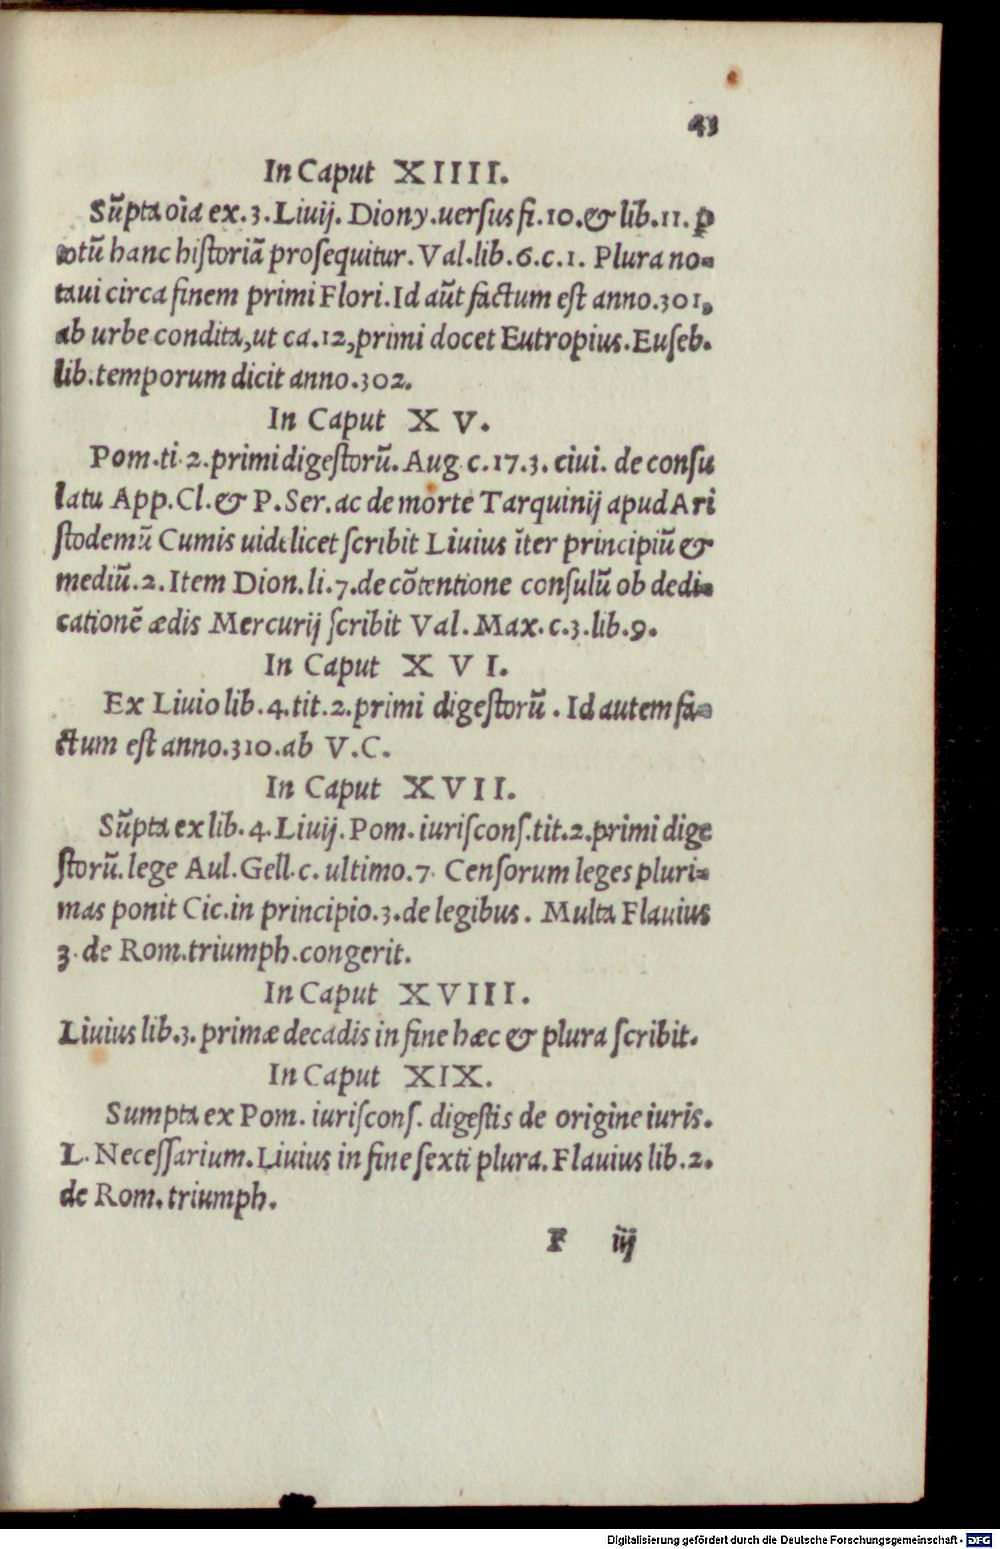 43
In Caput XIIII.
Sũpta oĩa ex.3.Liuij. Diony.uersus fi.10.& lib.11. ꝑ
totũ hanc historiã prosequitur. Val.lib.6.c.1. Plura no-
taui circa finem primi Flori.Id aũt factum est anno.301,
ab urbe condita,ut ca.12,primi docet Eutropius.Euseb.
lib.temporum dicit anno.302.
In Caput XV.
Pom.ti.2.primi digestorũ.Aug.c.17.3. ciui. de consu
latu App.Cl.& P.Ser.ac de morte Tarquinij apud Ari
stodemũ Cumis uidelicet scribit Liuius ĩter principiũ &
mediũ.2.Item Dion.li.7.de cõtentione consulũ ob dedi-
cationẽ ædis Mercurij scribit Val.Max.c.3.lib.9.
In Caput XVI.
Ex Liuio lib.4.tit.2.primi digestorũ.Id autem fa-
ctum est anno.310.ab V.C.
In Caput XVII.
Sũpta ex lib.4.Liuij.Pom.iuriscons.tit.2.primi dige
storũ.lege Aul.Gell.c.ultimo.7. Censorum leges pluri-
mas ponit Cic.in principio.3.de legibus. Multa Flauius
3.de Rom.triumph.congerit.
In Caput XVIII.
Liuius lib.3.primæ decadis in fine hæc & plura scribit.
In Caput XIX.
Sumpta ex Pom. iuriscons. digestis de origine iuris.
L.Necessarium.Liuius in fine sexti plura.Flauius lib.2.
de Rom.triumph.
F iij
Digitalisierung gefördert durch die Deutsche Forschungsgemeinschaft - DFG